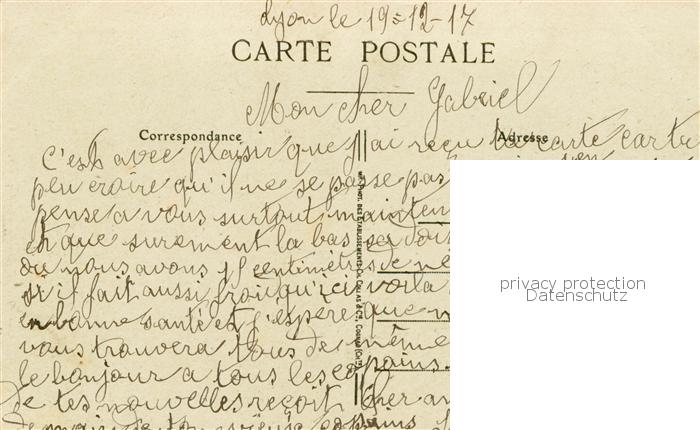 Lyon le 19=12-17
CARTE POSTALE
Mon cher Gabriel
Correspondance
Adresse
C'est avec plaisir que j'ai reçu ta carte car tu
peu croire qu'il ne se passe pas
pense a vous surtout mainten
et que surement la bas
ou nous avons 15 centimètres de ne
or il fait aussi froi qu'ici voila
en bonne santé et j'espère que
vous trouvera tous de même
le bonjour a tous les copains.
de tes nouvelles reçoit cher am
PHOT. DES ETABLISSEMENTS CH. COLAS & Cie, COGNAC (CHte)
privacy protection
Datenschutz